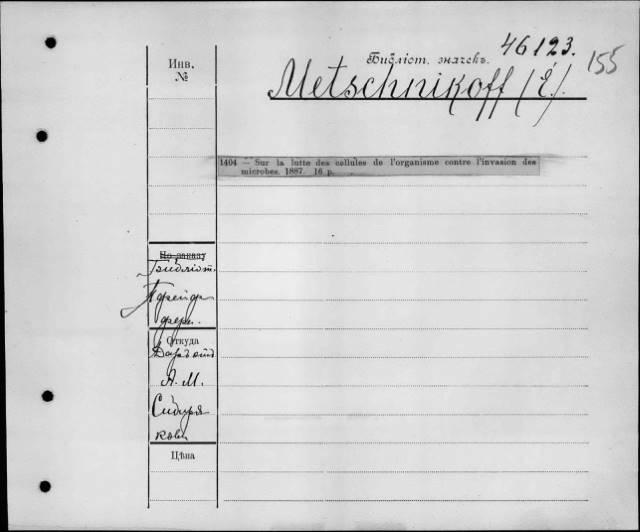 46123.
155
Инв.
№
Библіот. значекъ.
Metschnikoff (É).
1404 — Sur la lutte des cellules de l'organisme contre l'invasion des
microbes. 1887. 16 p.
По заказу
Библіот.
Откуда
Даръ отъ
А. М.
Сибиря
кова
Цѣна